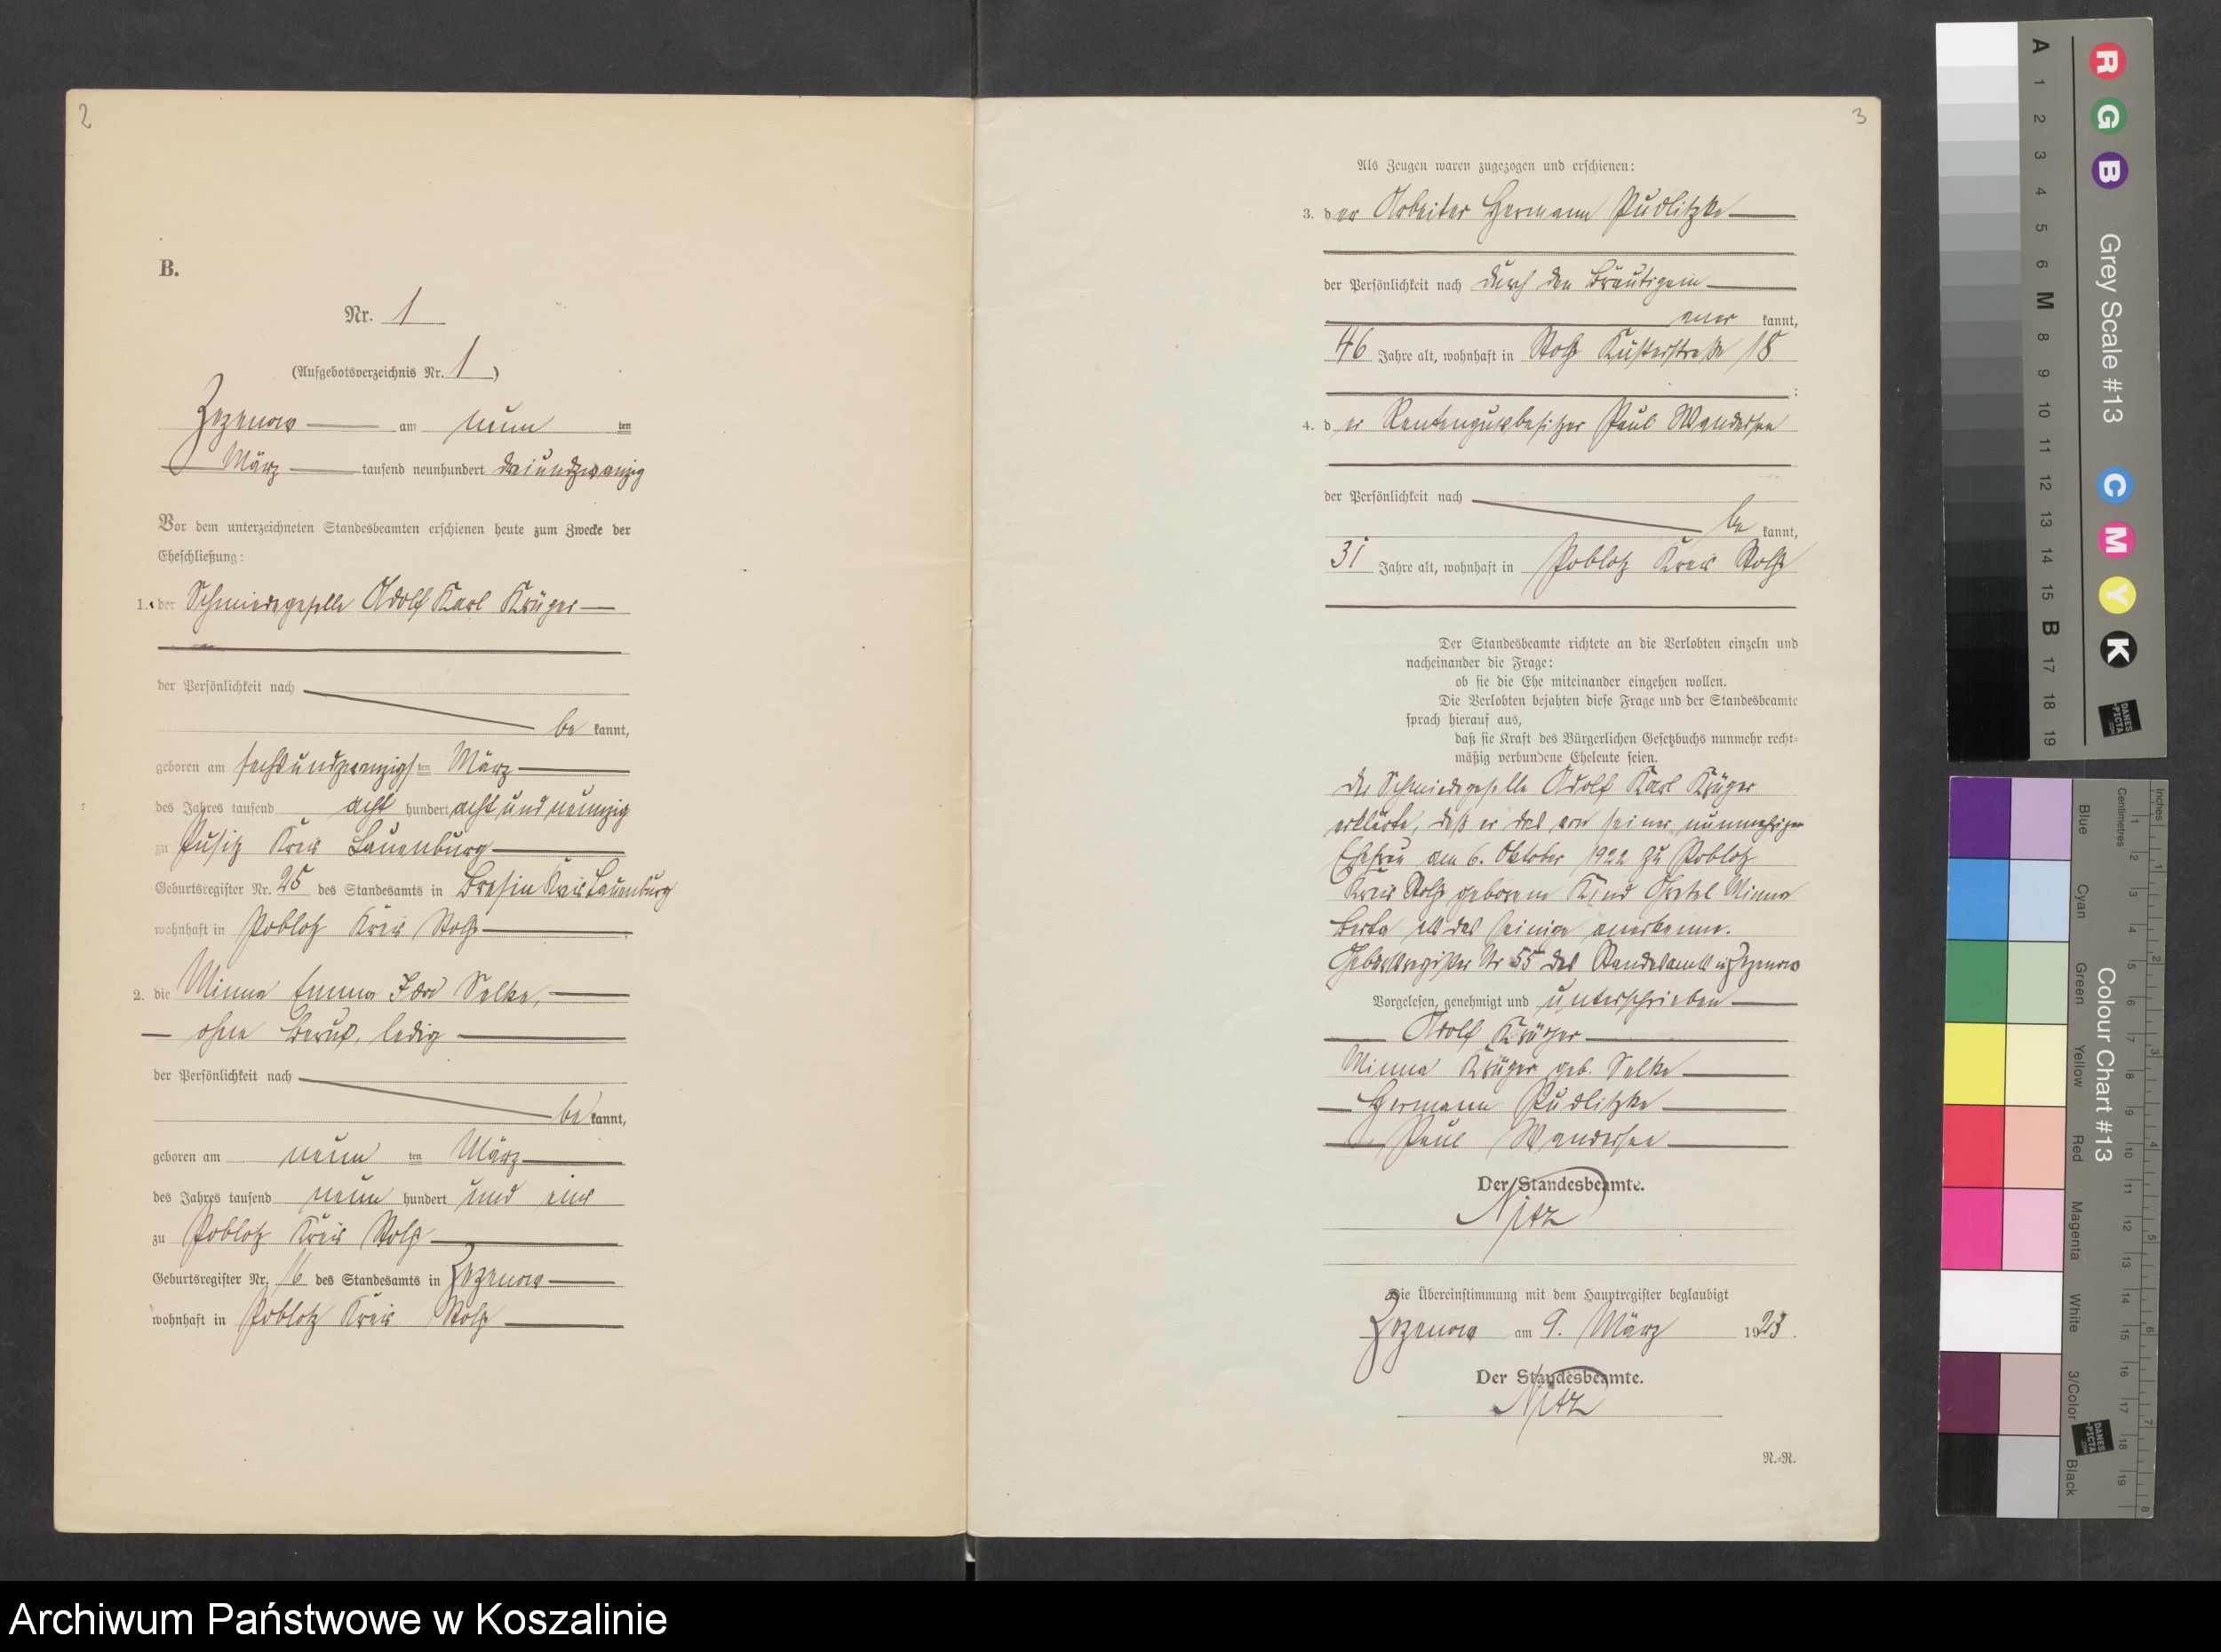 2
B.
Nr. 1
(Aufgebotsverzeichnis Nr. 1)
Zezenow am neun ten
März tausend neunhundert dreiundzwanzig
Vor dem unterzeichneten Standesbeamten erschienen heute zum Zwecke der
Eheschließung:
1. der Schmiedegeselle Adolf Karl Krüger
der Persönlichkeit nach
be kannt,
geboren am sechsundzwanzigs ten März
des Jahres tausend acht hundert acht und neunzig
zu Pusitz Kreis Lauenburg
Geburtsregister Nr. 25 des Standesamts in Bresin Kreis Lauenburg
wohnhaft in Poblotz Kreis Stolp
2. die Minna Emma Selke,
ohne Beruf, ledig
der Persönlichkeit nach
be kannt,
geboren am neun ten März
des Jahres tausend neun hundert und eins
zu Poblotz Kreis Stolp
Geburtsregister Nr. 16 des Standesamts in Zezenow
wohnhaft in Poblotz Kreis Stolp
3
Als Zeugen waren zugezogen und erschienen:
3. der Arbeiter Hermann Pudlitzke
der Persönlichkeit nach durch den Bräutigam
aner kannt,
46 Jahre alt, wohnhaft in Stolp Küsterstraße 18
;
4. der Rentengutsbesitzer Paul Wandersee
der Persönlichkeit nach
be kannt,
31 Jahre alt, wohnhaft in Poblotz Kreis Stolp
Der Standesbeamte richtete an die Verlobten einzeln und
nacheinander die Frage:
ob sie die Ehe miteinander eingehen wollen.
Die Verlobten bejahten diese Frage und der Standesbeamte
sprach hierauf aus,
daß sie Kraft des Bürgerlichen Gesetzbuchs nunmehr recht-
mäßig verbundene Eheleute seien.
Der Schmiedegeselle Adolf Karl Krüger
erklärte, daß er das von seiner nunmehrigen
Ehefrau am 6. Oktober 1922 zu Poblotz
Kreis Stolp geborene Kind Gretel Minna
Berta als das seinige anerkenne.
Geburtsregister Nr 55 des Standesamts in Zezenow
Vorgelesen, genehmigt und unterschrieben
Adolf Krüger
Minna Krüger geb. Selke
Hermann Pudlitzke
Paul Wandersee
Der Standesbeamte.
Nitz
Die Übereinstimmung mit dem Hauptregister beglaubigt
Zezenow am 9. März 1923.
Der Standesbeamte.
Nitz
N.-R.
A 1 2 3 4 5 6 M 8 9 10 11 12 13 14 15 B 17 18 19
R G B Grey Scale #13 C M Y K
DANES PICTA .COM
Blue Cyan Green Yellow Red Magenta White 3/Color Black
Colour Chart #13
Centimetres 1 2 3 4 5 6 7 8 9 10 11 12 13 14 15 16 17 18 19
Inches 1 2 3 4 5 6 7 8
DANES PICTA .COM
Archiwum Państwowe w Koszalinie